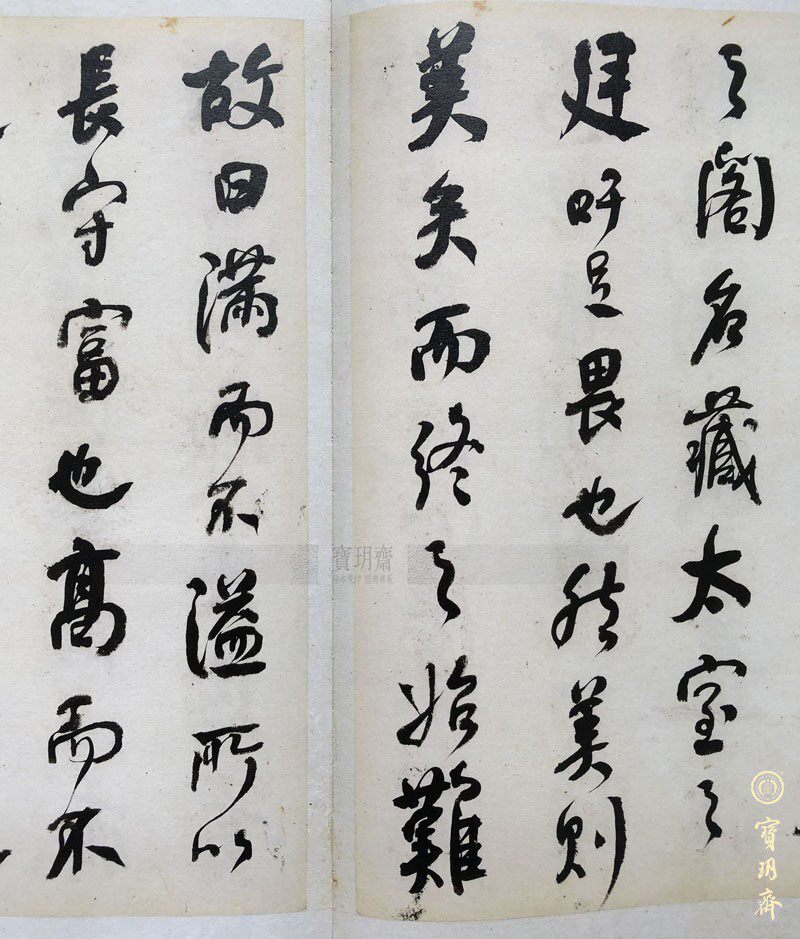 之閣名藏太室之
廷吁足畏也然美則
美矣而終之始難
故曰滿而不溢所以
長守富也高而不
寶玥齋
寶玥齋